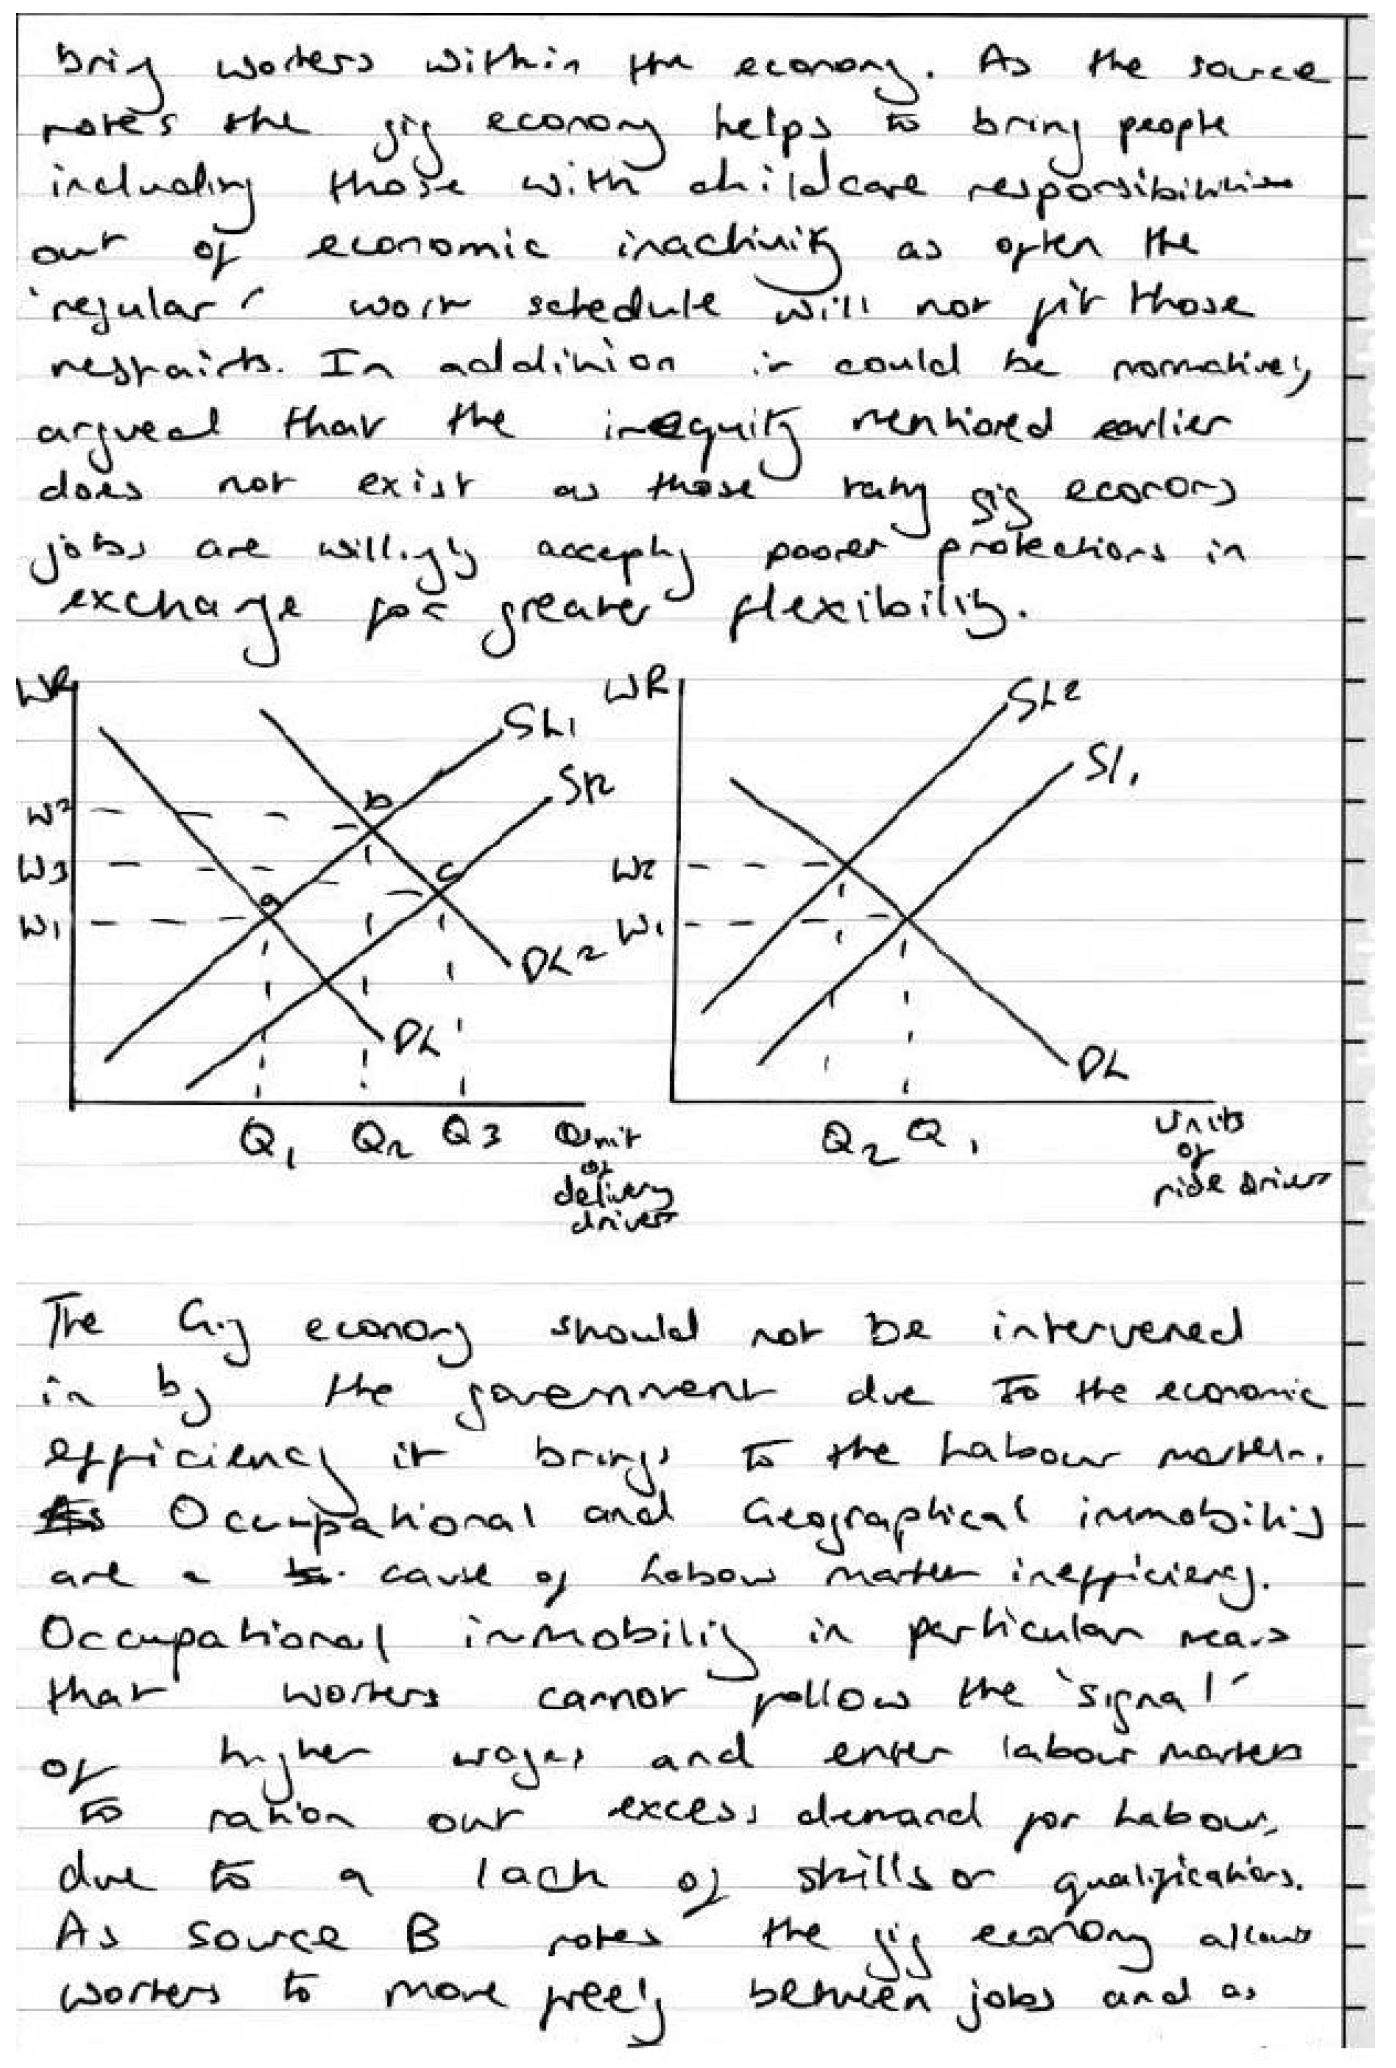 bring workers within the economy. As the source
notes the gig economy helps to bring people
including those with childcare responsibilities
out of economic inactivity as often the
'regular' work schedule will not fit those
restraints. In addition it could be normatively
argued that the inequity mentioned earlier
does not exist as those taking gig economy
jobs are willingly accepting poorer protections in
exchange for greater flexibility.
WR
SL1
SL2
W2
b
W3
c
a
W1
DL2
DL
Q1 Q2 Q3
Unit
of
delivery
drivers
WR
SL2
SL1
W2
W1
DL
Q2 Q1
Units
of
ride drivers
The Gig economy should not be intervened
in by the government due to the economic
efficiency it brings to the Labour market.
As Occupational and Geographical immobility
are a cause of Labour market inefficiency.
Occupational immobility in particular means
that workers cannot follow the 'signal'
of higher wages and enter labour markets
to ration out excess demand for Labour,
due to a lack of skills or qualifications.
As source B notes the gig economy allows
workers to move freely between jobs and as